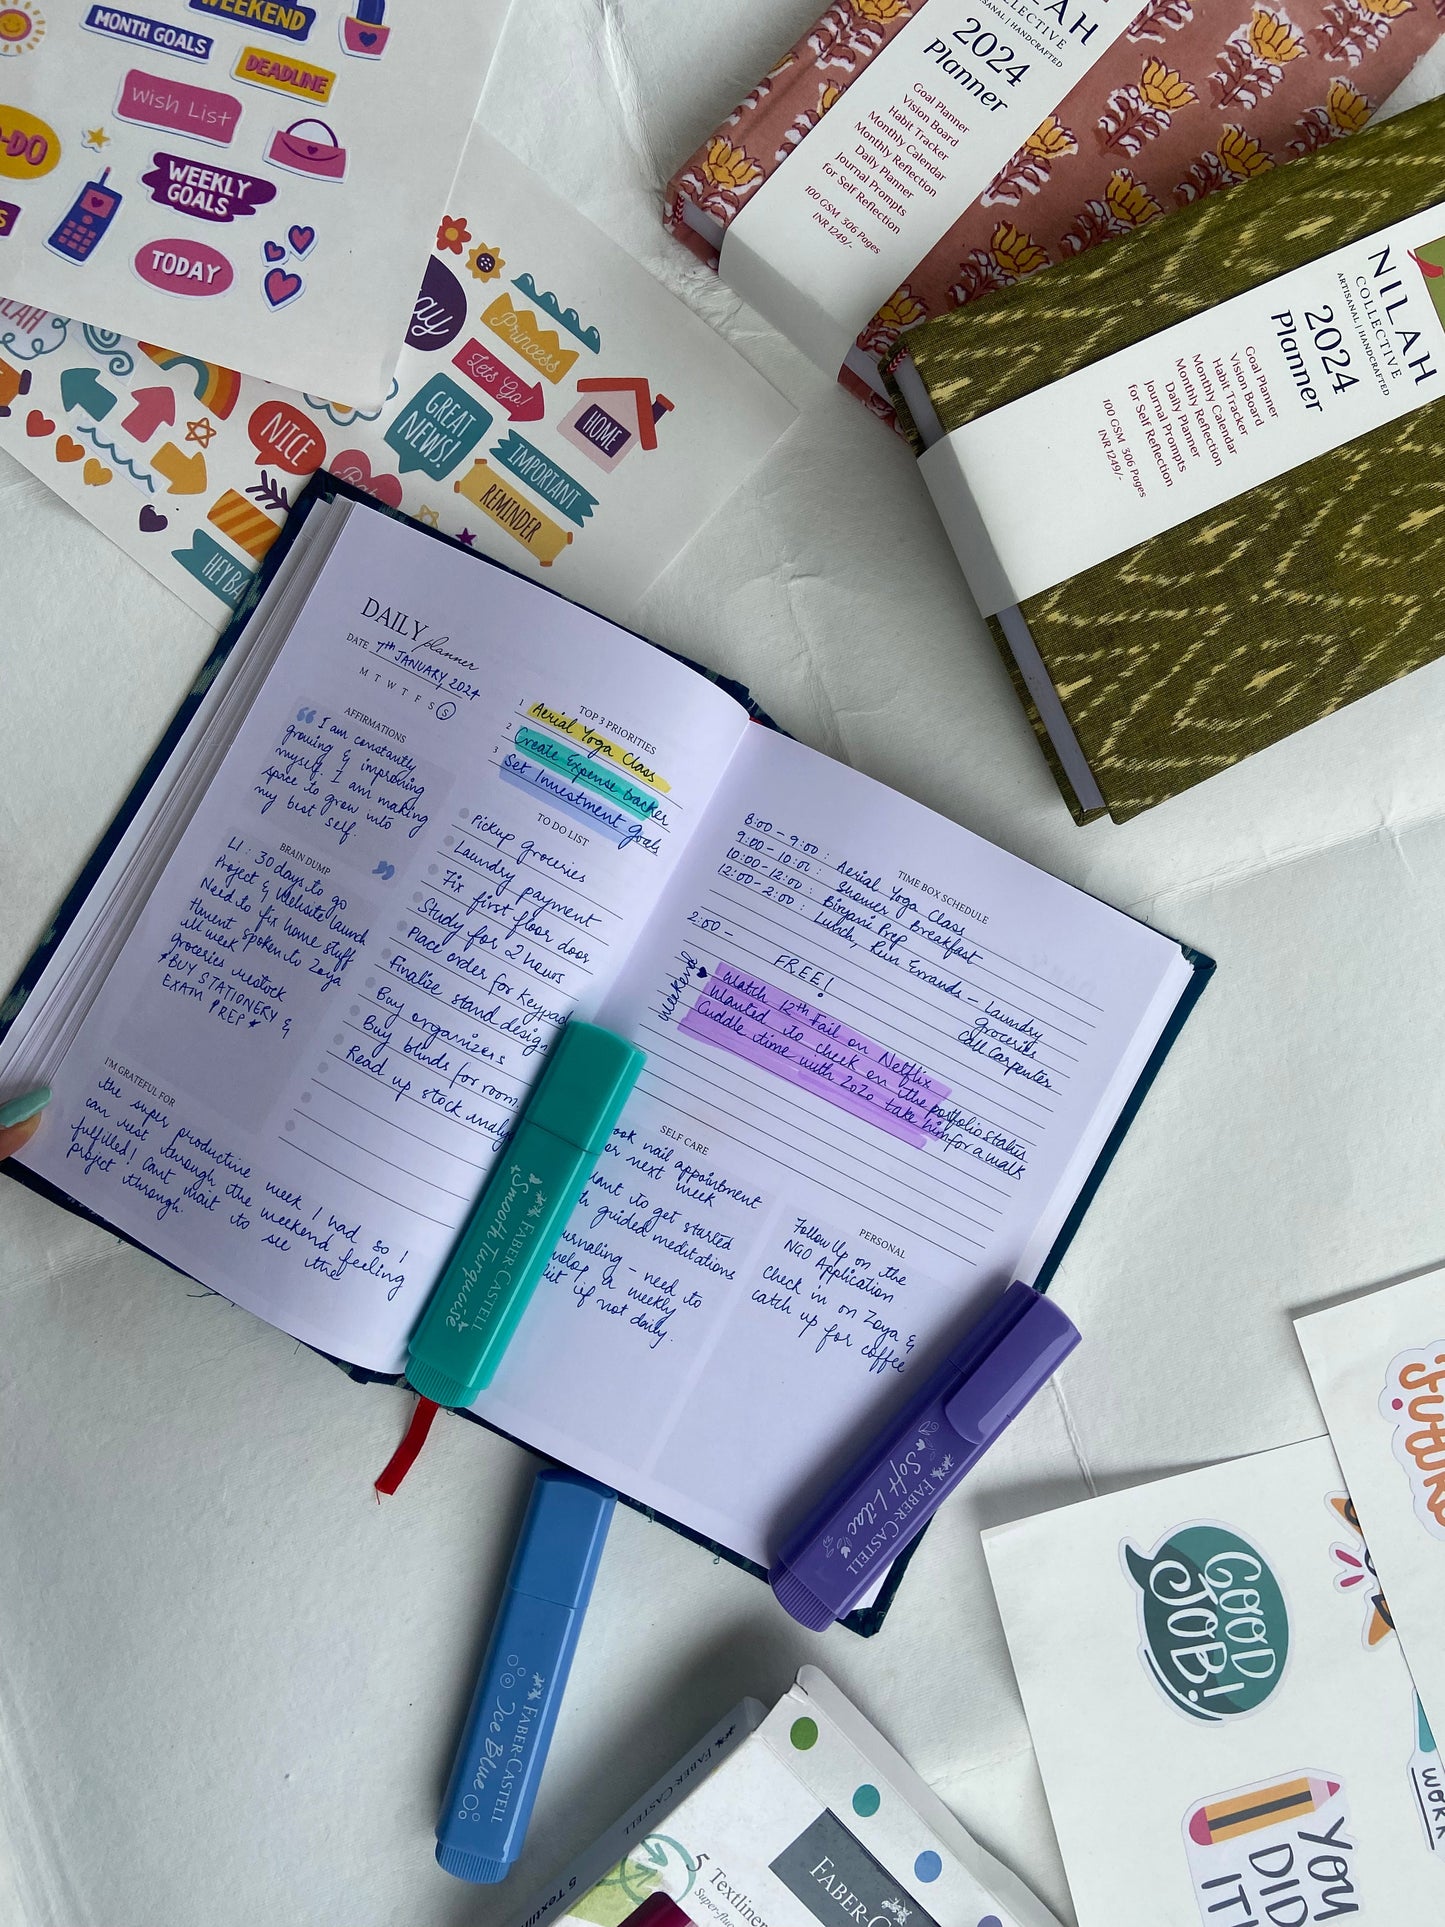 WEEKEND
MONTH GOALS
DEADLINE
Wish List
WEEKLY
GOALS
TODAY
Princess
Lets Go!
GREAT
NEWS!
HOME
NICE
IMPORTANT
REMINDER
NILAH
COLLECTIVE
ARTISANAL | HANDCRAFTED
2024
Planner
Goal Planner
Vision Board
Habit Tracker
Monthly Calendar
Monthly Reflection
Daily Planner
Journal Prompts
for Self Reflection
100 GSM 306 Pages
INR 1249/-
LAH
LLECTIVE
ISANAL | HANDCRAFTED
2024
Planner
Goal Planner
Vision Board
Habit Tracker
Monthly Calendar
Monthly Reflection
Daily Planner
Journal Prompts
for Self Reflection
100 GSM 306 Pages
INR 1249/-
DAILY planner
DATE 7th JANUARY, 2024
M T W T F S S
AFFIRMATIONS
“ I am constantly
growing & improving
myself. I am making
space to grow into
my best self. ”
BRAIN DUMP
LI : 30 days to go
Project & Website launch
Need to fix home stuff
spoken to Zoya
all week
groceries restock
*BUY STATIONERY &
EXAM PREP*
I'M GRATEFUL FOR
the super productive week I had so I
can rest through the weekend feeling
fulfilled! Cant wait to see the
project through.
TOP 3 PRIORITIES
1 Aerial Yoga Class
2 Create Expense tracker
3 Set Investment Goals
TO DO LIST
Pickup groceries
Laundry payment
Fix first floor door
Study for 2 hours
Place order for Keypad
Finalize stand design
Buy organizers
Buy blinds for room
Read up stock analy
TIME BOX SCHEDULE
8:00 - 9:00 : Aerial Yoga Class
9:00 - 10:00 : Shower Breakfast
10:00 - 12:00 : Biryani Prep
12:00 - 2:00 : Lunch, Run Errands - Laundry
groceries
Call Carpenter
2:00 - FREE!
weekend
Watch 12th Fail on Netflix
Wanted to check on the portfolio status
Cuddle time with ZoZo take him for a walk
SELF CARE
ook nail appointment
or next week
ant to get started
h guided meditations
urnaling - need to
velop a weekly
list if not daily.
PERSONAL
Follow Up on the
NGO Application
Check in on Zoya &
catch up for coffee
FABER-CASTELL
Smooth Turquoise
FABER-CASTELL
Soft Lilac
FABER-CASTELL
Ice Blue
FABER-CASTELL
5 Textliner
FABER-C
GOOD
JOB!
YOU
DID
IT!
WORK